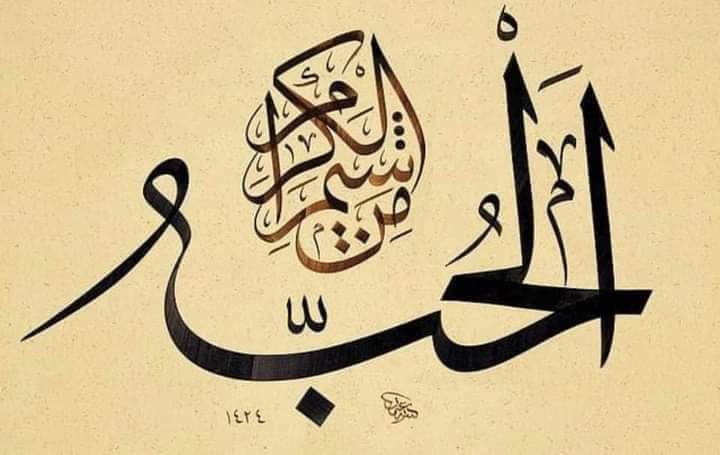 اَلْحُبُّ
مِن شيم الكرام
١٤٢٤